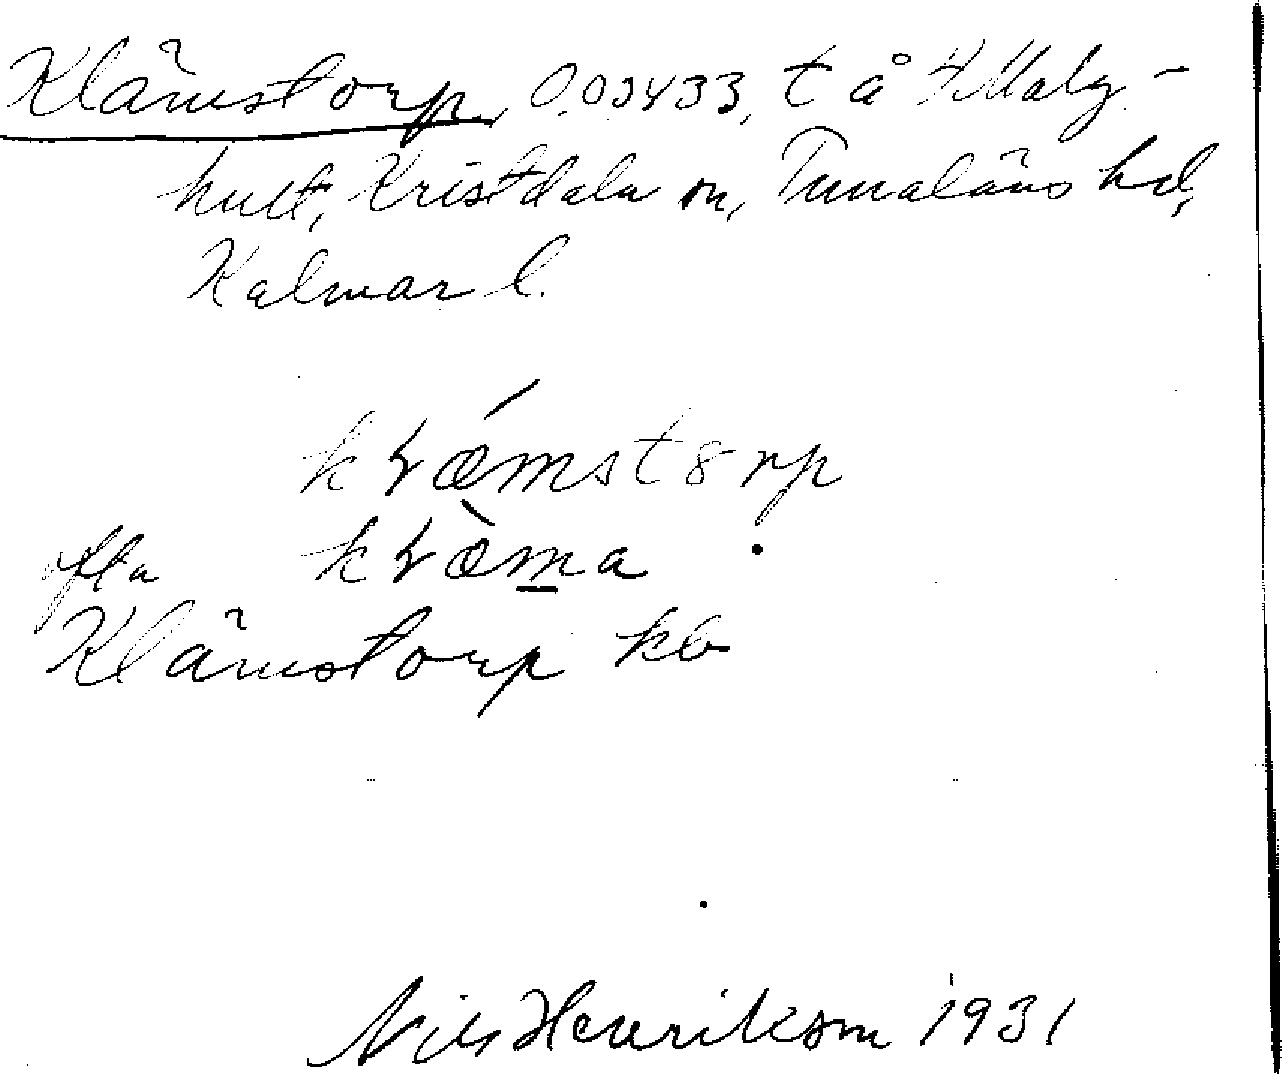 Klämstorp, 0.03433, t å 4 Malg-
hult, Kristdala sn, Tunaläns hd,
Kalmar l.
kɽǽmstɔrp
ofta kɽæ̀m̲a
Klämstorp kb
Nils Henrikson 1931